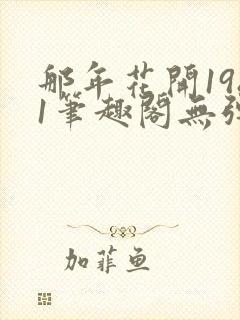 那年花開19
1筆趣閣無彈
加菲魚